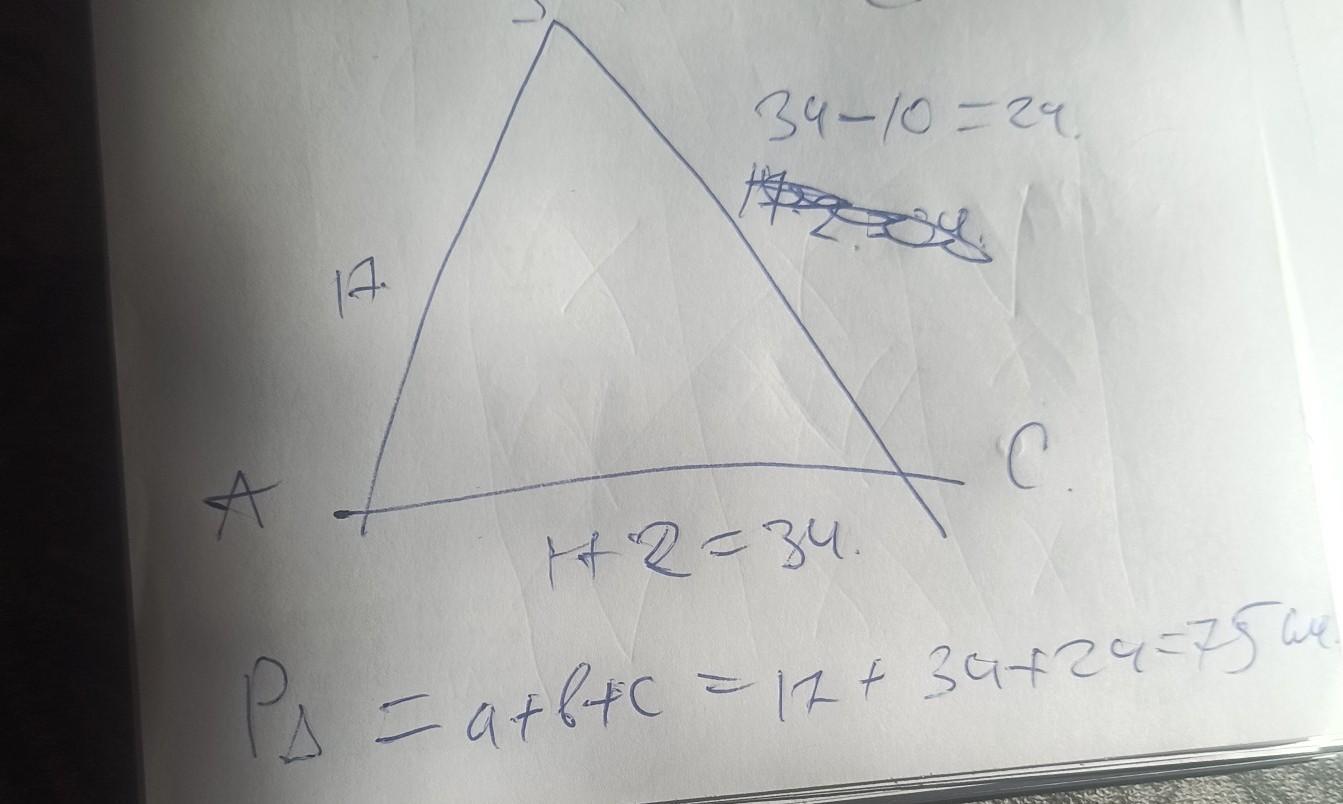 34-10=24.
17.
A
C.
17·2=34.
P△ = a+b+c = 17 + 34+24=75 см